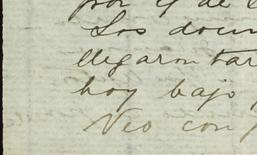 por q de
Los docu
llegaron tar
hoy bajo
Veo con